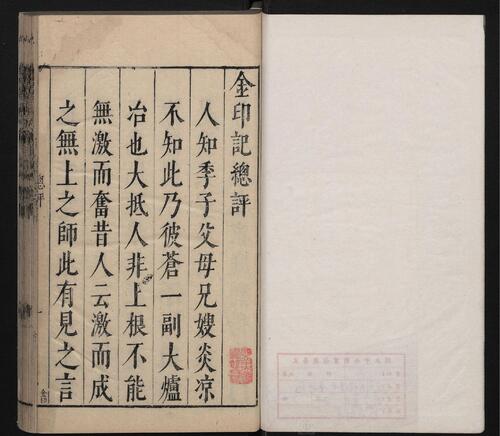 金印記總評
人知季子父母兄嫂炎凉
不知此乃彼蒼一副大爐
冶也大抵人非上根不能
無激而奮昔人云激而成
之無上之師此有見之言
總評
一